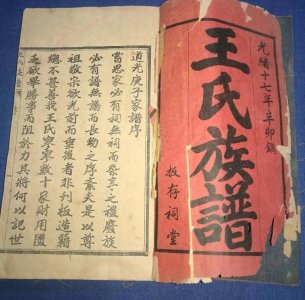 光緒十七年辛卯鐫
王氏族譜
板存祠堂
道光庚子家譜序
嘗思家必有祠無祠而蒸嘗之禮廢族
必有譜無譜而長幼之序紊夫是以尊
祖敬宗欲光前而垂後者非刊板造籍
總不善吾我王氏寥寥數十家財用匱
乏欲舉勝事而阻於力其將何以記世